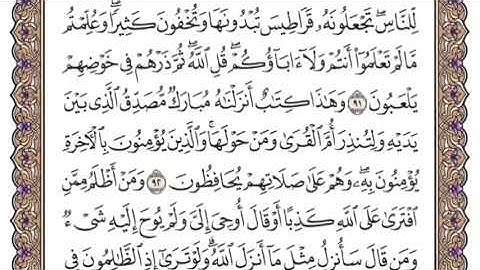 لِّلنَّاسِۖ تَجْعَلُونَهُۥ قَرَاطِيسَ تُبْدُونَهَا وَتُخْفُونَ كَثِيرٗاۖ وَعُلِّمْتُم
مَّا لَمْ تَعْلَمُوٓاْ أَنتُمْ وَلَآ ءَابَآؤُكُمْۖ قُلِ ٱللَّهُۖ ثُمَّ ذَرْهُمْ فِي خَوْضِهِمْ
يَلْعَبُونَ ٩١ وَهَٰذَا كِتَٰبٌ أَنزَلْنَٰهُ مُبَارَكٞ مُّصَدِّقُ ٱلَّذِي بَيْنَ
يَدَيْهِ وَلِتُنذِرَ أُمَّ ٱلْقُرَىٰ وَمَنْ حَوْلَهَاۚ وَٱلَّذِينَ يُؤْمِنُونَ بِٱلْأٓخِرَةِ
يُؤْمِنُونَ بِهِۦۖ وَهُمْ عَلَىٰ صَلَاتِهِمْ يُحَافِظُونَ ٩٢ وَمَنْ أَظْلَمُ مِمَّنِ
ٱفْتَرَىٰ عَلَى ٱللَّهِ كَذِبًا أَوْ قَالَ أُوحِيَ إِلَيَّ وَلَمْ يُوحَ إِلَيْهِ شَيْءٞ
وَمَن قَالَ سَأُنزِلُ مِثْلَ مَآ أَنزَلَ ٱللَّهُۗ وَلَوْ تَرَىٰٓ إِذِ ٱلظَّٰلِمُونَ فِي